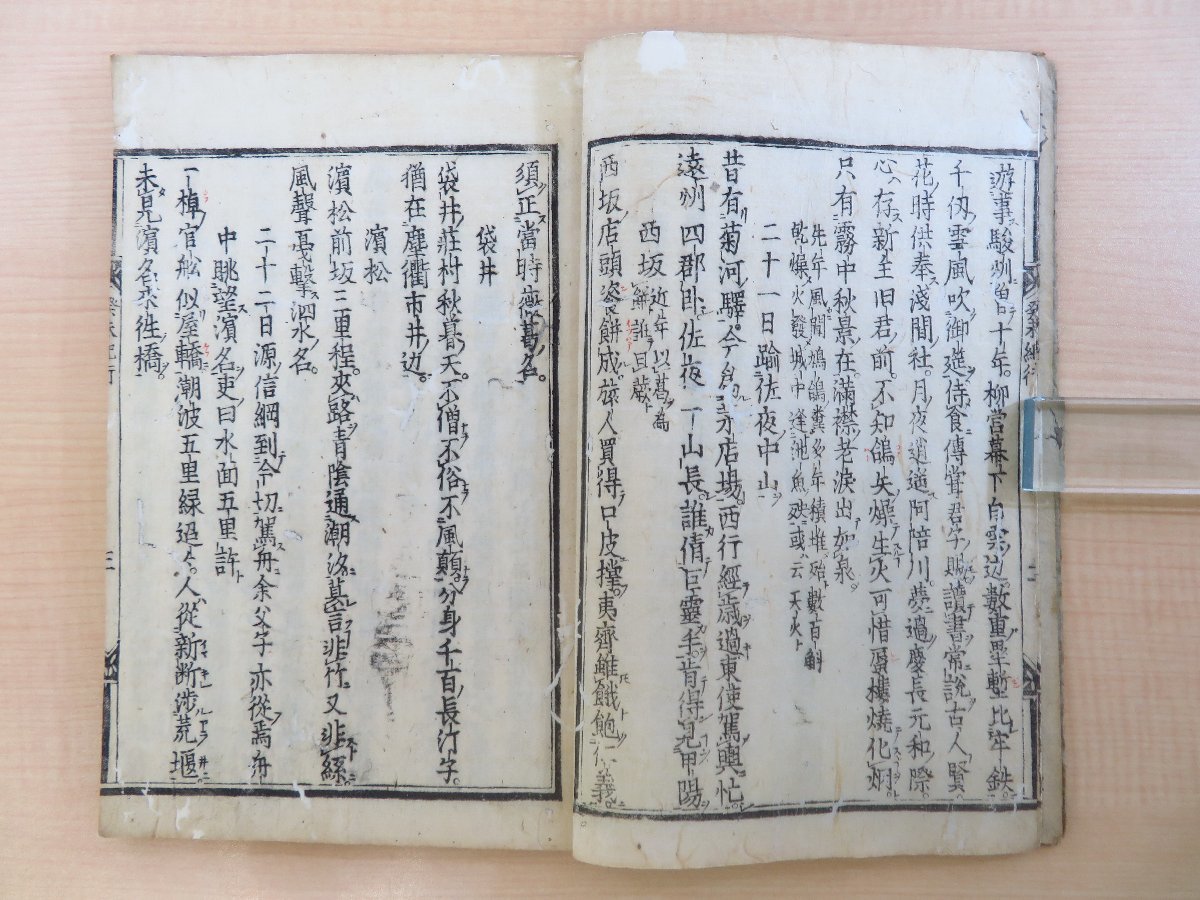 遊事駿州曽十年。柳営幕下白雲辺。数重塁塹比牢鉄。
千仭雲風吹御筵。侍食傳甞君子賜。讀書常説古人賢。
花時供奉淺間社。月夜逍遥阿陪川。夢過慶長元和際。
心存新主旧君前。不知鴿矢燥生火。可惜蜃樓燒化烟。
只有霧中秋景在。滿襟老淚出如泉。
先年風聞鳩鴿糞多年積堆殆數百斛
乾燥火發城中逢池魚殃或云天火
二十一日踰佐夜中山
昔有菊河驛今為予店場西行經歳過東使駕輿忙
遠州四郡卧佐夜一山長誰倩巨靈手肯得見甲陽
西坂近年以葛為餅誰且蕨
西坂店頭瓷餅成。旅人買得口皮撑。夷齊雖餓飽仁義。
須正當時蕨葛名。
袋井
袋井莊村秋暮天。不僧不俗不風顛。分身千百長汀子。
猶在塵衢市井辺。
濱松
濱松前坂二里程。夾路青陰通潮汐。莫言非竹又非絲
風聲戞擊泗水名。
二十二日源信綱到今切駕舟余父子亦從焉舟
中眺望濱名吏曰水面五里許
一棹官船似屋轎。潮波五里緑迢々。人從新断渉荒堰
未見濱名來徃橋。